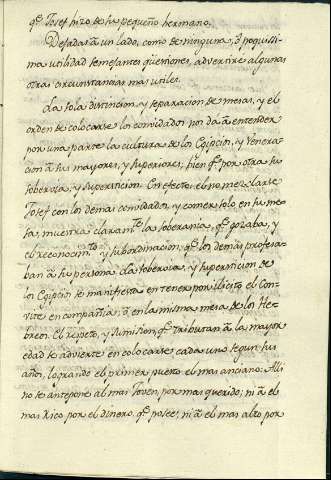 qᵉ Josef hizo de su pequeño hermano.
Dejadas à un lado, como de ninguna, ò poquissi-
ma utilidad semejantes questiones, advertirè algunas
otras circunstancias mas utiles.
La sola distincion, y separacion de mesas, y el
orden de colocarse los convidados nos da à entender
por una parte la cultura de los Egipcios, y venera-
cion à sus mayores, y superiores; bien qᵉ por otra su
soberbia, y supersticion. En efecto: el no mezclarse
Josef con los demas convidados, y comer solo en su me-
sa, muestra claramᵗᵉ la soberania, qᵉ gozaba, y
el reconocimᵗᵒ, y subordinacion, qᵉ los demàs profesa-
ban à su persona. La soberbia, y supersticion de
los Egipcios se manifiesta en tener por ilicito el con-
vite en compañia, ò en la misma mesa de los He-
breos. El respeto, y sumision, qᵉ tributan à la mayor
edad se advierte en colocarse cada uno segun sus
años, logrando el primer puesto el mas anciano. Alli
no se antepone al mas joven, por mas querido; ni à el
mas rico por el dinero, qᵉ posee; ni à el mas alto por